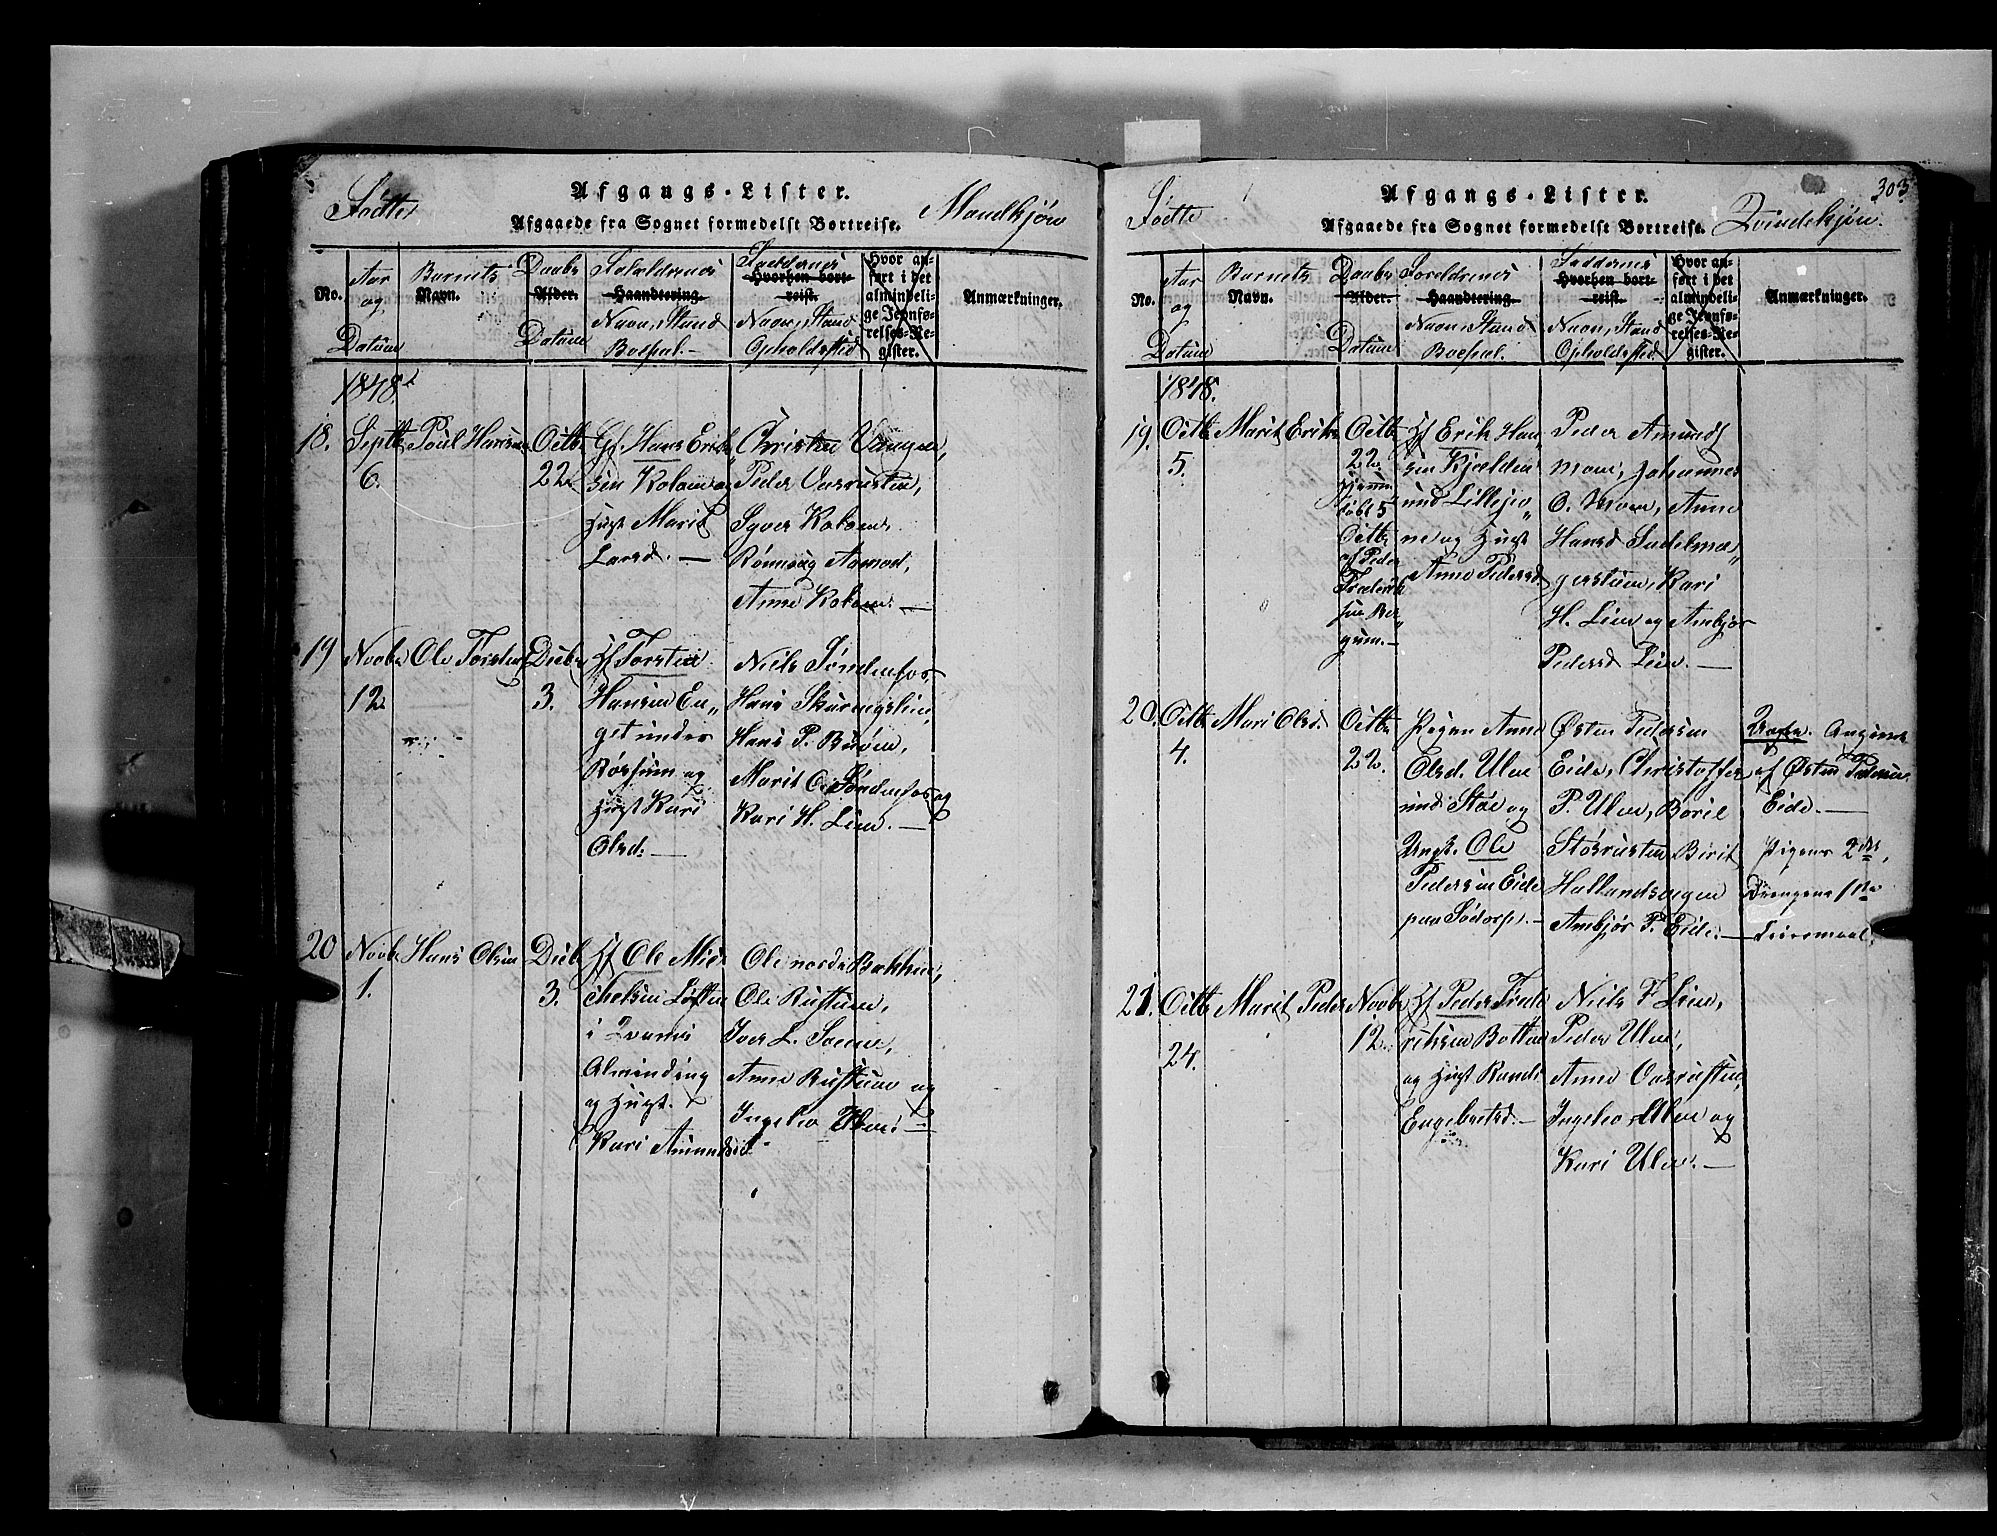 Afgangs-Lister.
Födte
Mandkjön
Afgaaede fra Sognet formedelst Bortreise.
No.
Aar og Datum
Barnets Navn.
Daabs Alder. Datum
Forældrenes Haandtering. Navn, Stand Bopæl.
Faddernes Hvorhen bortreist. Navn, Stand Opholdssted
Hvor anført i det almindelige Jevnførelses-Register.
Anmærkninger.
1848.
18. Septb 6. Poul Hansen Octb 22.
Gf. Hans Erik
sen Koloen og
Hust Marit
Larsd. —
Christen Vangen,
Peder Aasrusten,
Syver Koloen,
Rönnaug Aamod,
Anne Koloen. —
19 Novbr 12. Ole Torsten Decbr 3.
Hf Torsten
Hansen En„
get under
Rossum og
Hust Kari
Olsd. —
Niels Söndenfos
Hans Skuringslien,
Hans P. Buöen,
Marit O. Söndenfos og
Kari H. Lien. —
20 Novbr 1. Hans Olsen Decb 3.
Hf Ole Mic
chelsen Löften
i Qvams
Alminding
og Hust.
Kari Amundsd
Ole nordre Bakken,
Ole Rusten,
Iver L. Soene,
Anne Rusten og
Ingebo Ulen. —
Afgangs-Lister.
303
Födte
Qvindekjön.
Afgaaede fra Sognet formedelst Bortreise.
No.
Aar og Datum
Barnets Navn.
Daabs Alder. Datum
Forældrenes Haandtering. Navn, Stand Bopæl.
Faddernes Hvorhen bortreist. Navn, Stand Opholdssted
Hvor anført i det almindelige Jevnførelses-Register.
Anmærkninger.
1848.
19. Octb 5. Marit Eriks Octb 22
hjemmedöbt 5 Octb af Peder Frederik
Hf Erik Han
sen Kjælden
und Lillejor„
og Hust
Anne Pedersd
Peder Amunds
moen, Johannes
O. Moen, Anne
Hansd Sadelma„
gerstuen, Kari
H. Lien og Ambjör
Pedersd Lien. —
20. Octb 4. Mari Olsd. Octb 22.
Pigen Anne
Olsd. Ulen
und Stöe og
Ungk. Ole
Pedersen Eide
paa Södorp. —
Östen Pedersen
Eide, Christoffer
P. Ulen, Boret
Stösrusten Berit
Hallandsagen
Ambjör P. Eide. —
Uægte. Angivet
af Östen Pedersen
Eide. —
Pigens 2det,
Drengens 1ste
Leiermaal.
21. Octb 24. Marit Peder Novbr 12.
Hf Peder Frede
riksen Botten
og Hust Randi
Engebretsd. —
Niels F Lien,
Peder Ulen,
Anne Aasrusten,
Ingebo Ulen og
Kari Ulen. —